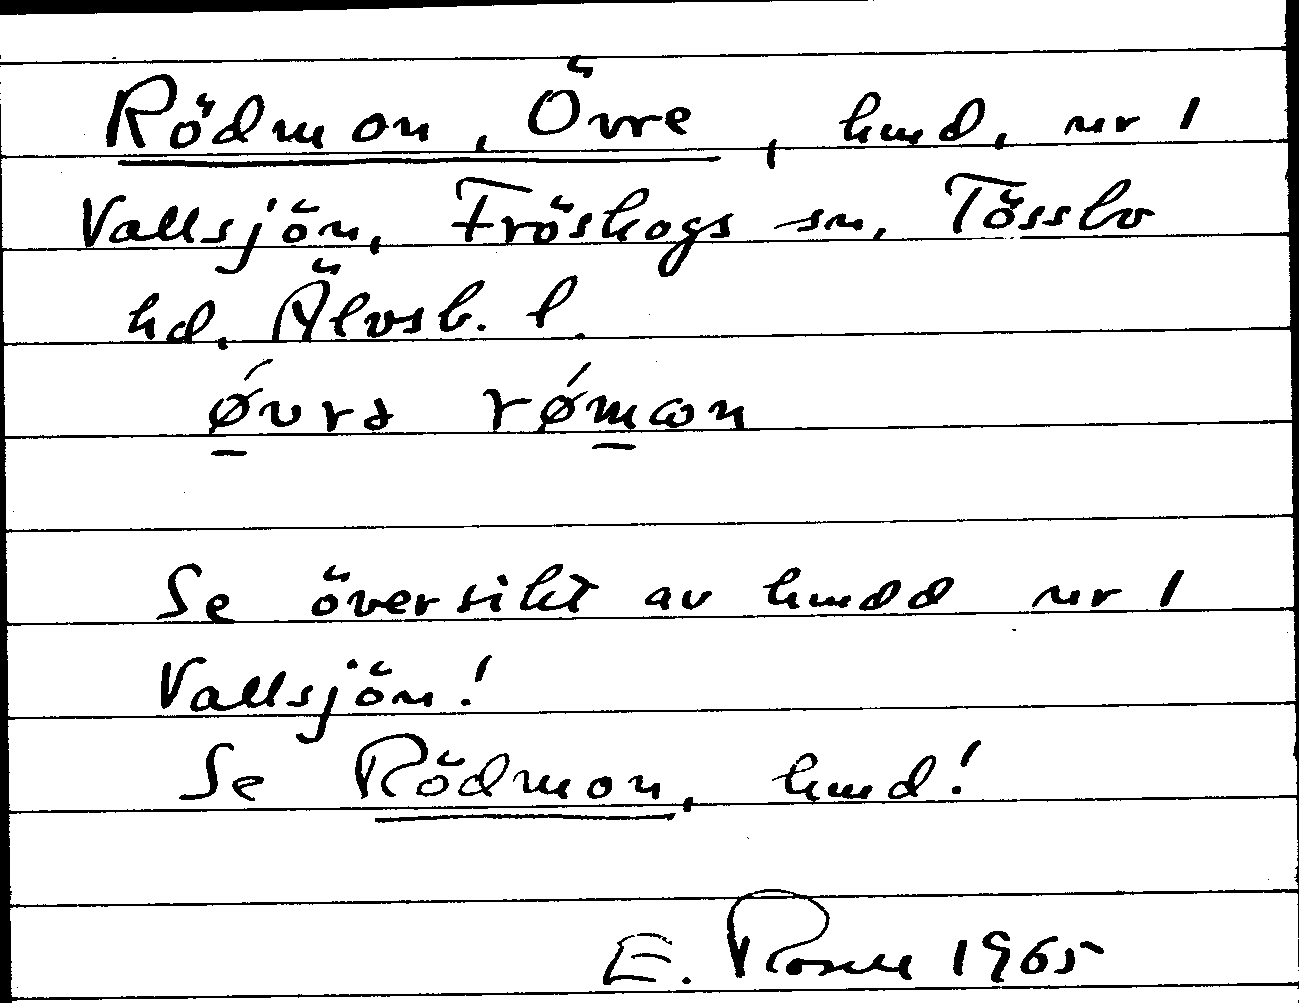 Rödmon, Övre, hmd, nr 1
Vallsjön, Fröskogs sn, Tössbo
hd. Älvsb. l.
ǿvrə rǿmωn
Se översikt av hmdd nr 1
Vallsjön!
Se Rödmon, hmd!
E. Rosell 1965